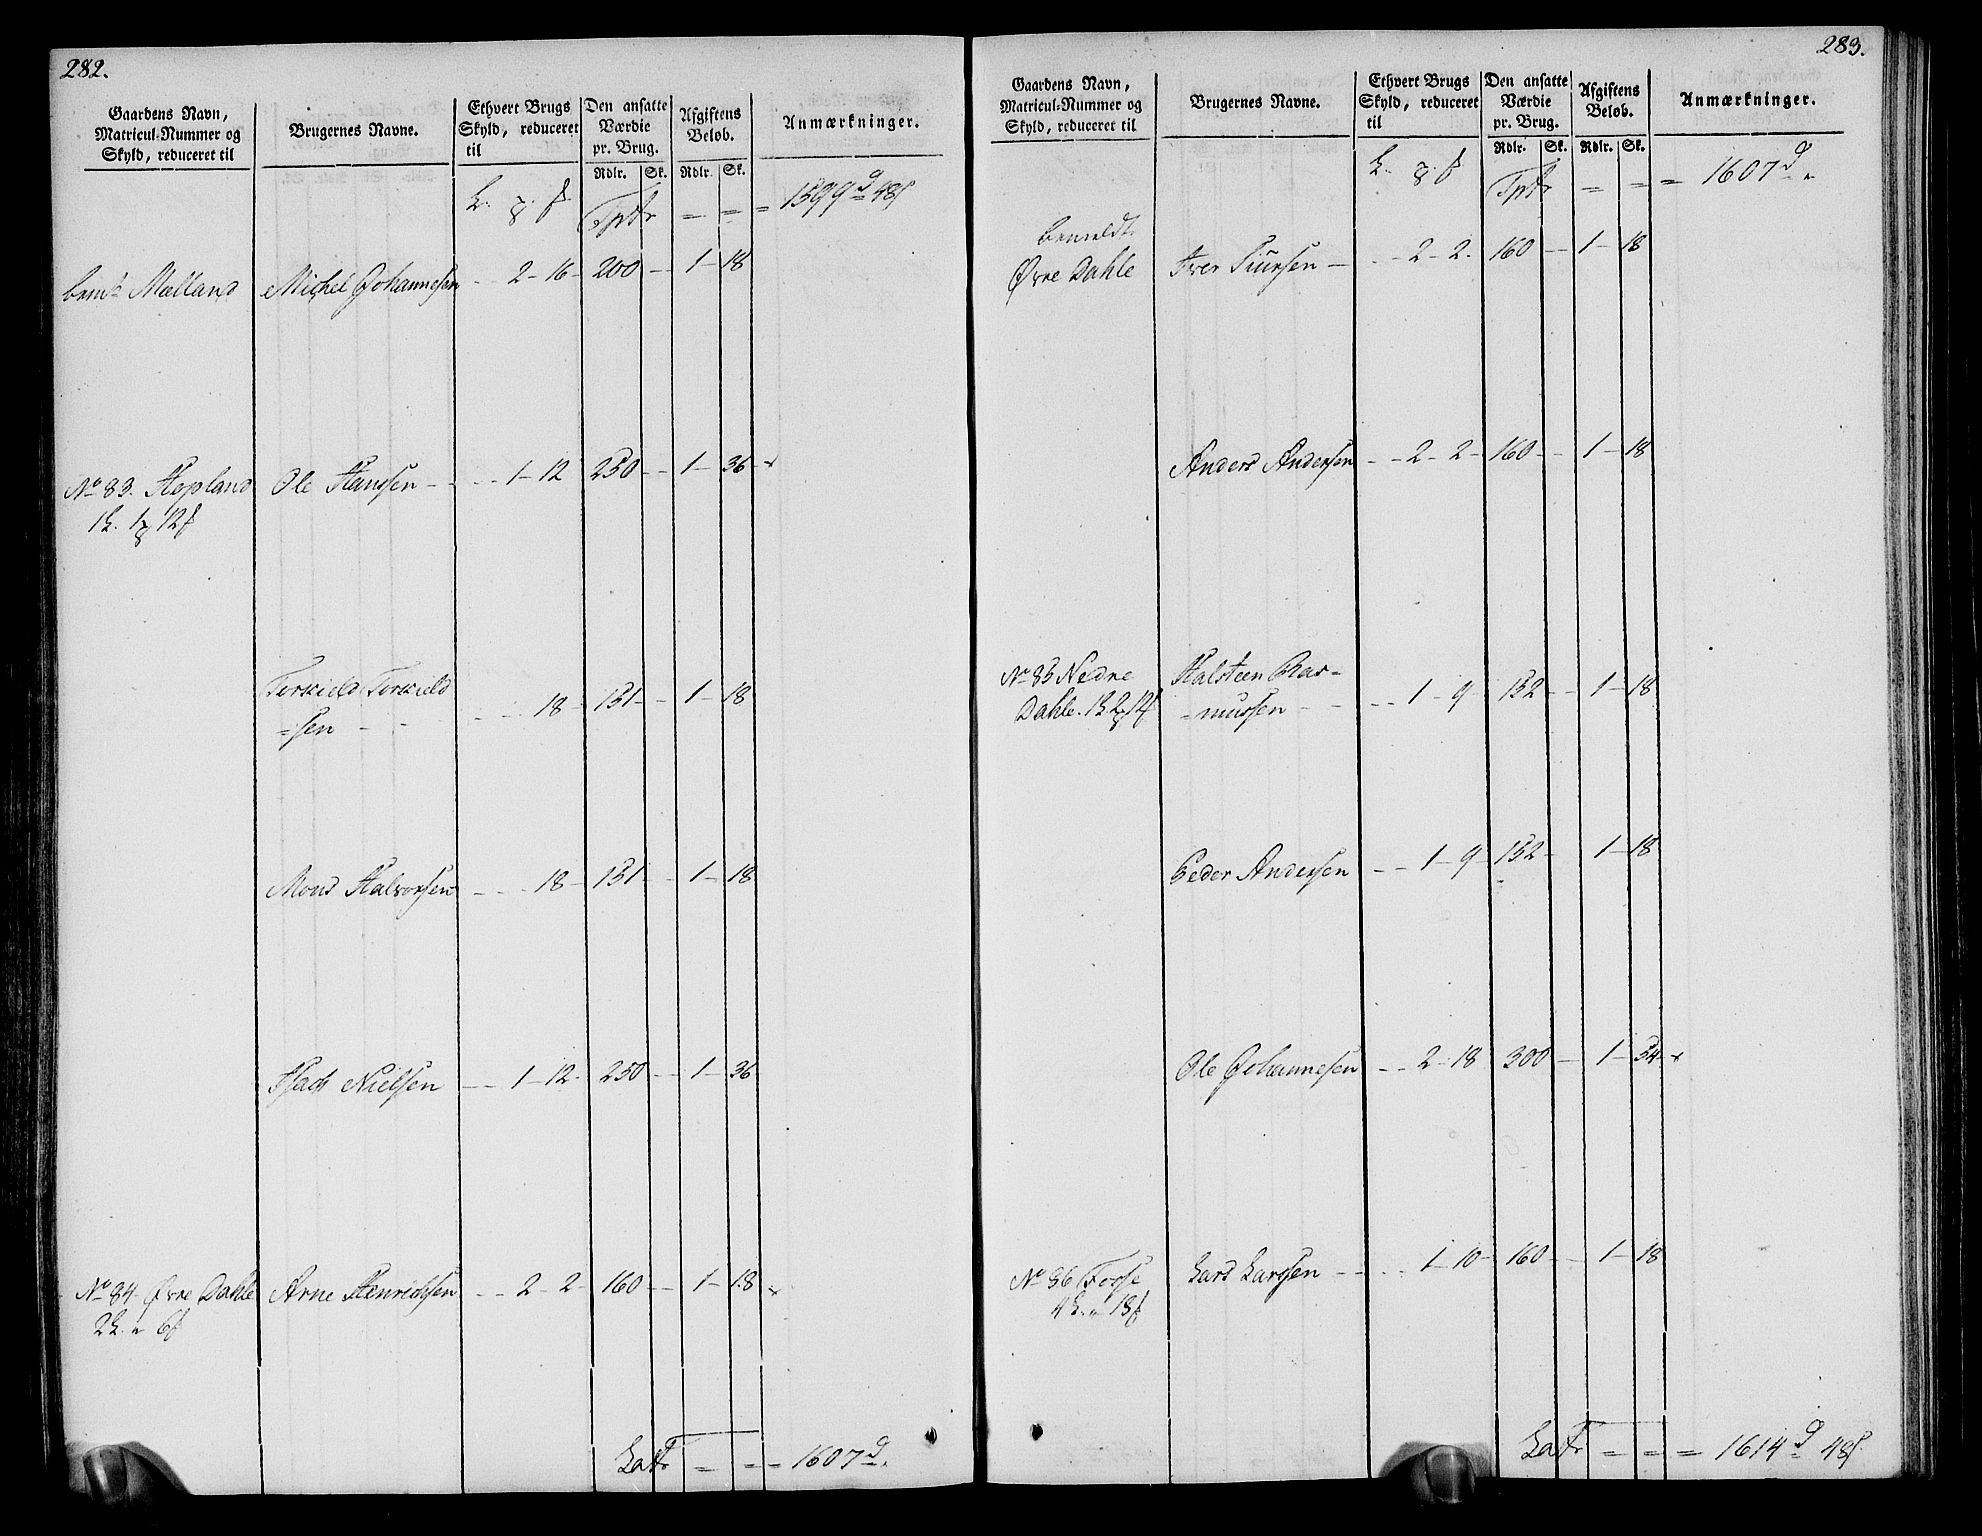 282.
Gaardens Navn, Matricul-Nummer og Skyld, reduceret til
Brugernes Navne.
Ethvert Brugs Skyld, reduceret til
Den ansatte Værdie pr. Brug.
Afgiftens Beløb.
Anmærkninger.
Rdlr. Sk. Rdlr. Sk.
Tptr = = = 1599 d 48 s
bem: Mælland Michel Johannesen - - 2 - 16 - 200 - - 1 - 18
No 83. Hopland Ole Hanssen - - - 1 - 12 250 - - 1 - 36
1 12
Torkield Torkield
=sen - - - - 18 - 151 - - 1 - 18
Mons Halvorsen - - - 18 - 151 - - 1 - 18
Isach Nielsen - - 1 - 12 - 250 - - 1 - 36
No 84 Øvre Dahle Arne Henrichsen - - 2 - 2 - 160 - - 1 - 18
2 " 6
Latr = = = 1607 d "
283.
Gaardens Navn, Matricul-Nummer og Skyld, reduceret til
Brugernes Navne.
Ethvert Brugs Skyld, reduceret til
Den ansatte Værdie pr. Brug.
Afgiftens Beløb.
Anmærkninger.
Rdlr. Sk. Rdlr. Sk.
Tptr = = = 1607 d "
bemeldte
Øvre Dahle Iver Siursen - - - 2 - 2. 160 - - 1 - 18
Anders Andersen - - 2 - 2 - 160 - - 1 - 18
No 85 Nedre Halsteen Ras=
Dahle. =mussen - - - - 1 - 9 - 152 - - 1 - 18
Peder Andersen - - 1 - 9 - 152 - 1 - 18
Ole Johannesen - - 2 - 18 - 300 - - 1 - 54
No 86 Fosse Lars Larssen - - - 1 - 10 - 160 - - 1 - 18
4 " 18
Latr = = = 1614 d 48 s